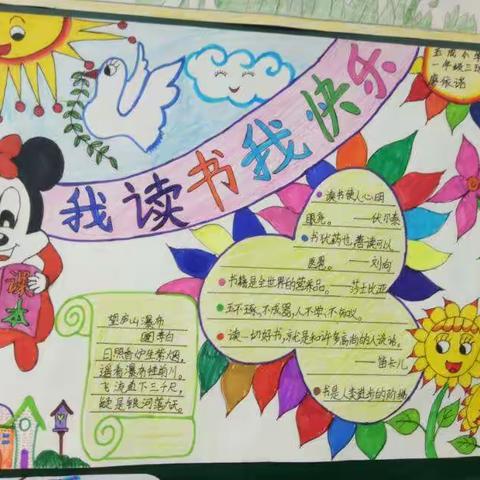 我读书我快乐
五成小学
一年级三班
廖依诺
课
本
望庐山瀑布
李白
日照香炉生紫烟,
遥看瀑布挂前川。
飞流直下三千尺,
疑是银河落九天。
读书使人心明
眼亮。——伏尔泰
书犹药也,善读可以
医愚。——刘向
书籍是全世界的营养品。——莎士比亚
玉不琢、不成器,人不学、不知义。
读一切好书,就是和许多高尚的人谈话。
——笛卡儿
书是人类进步的阶梯